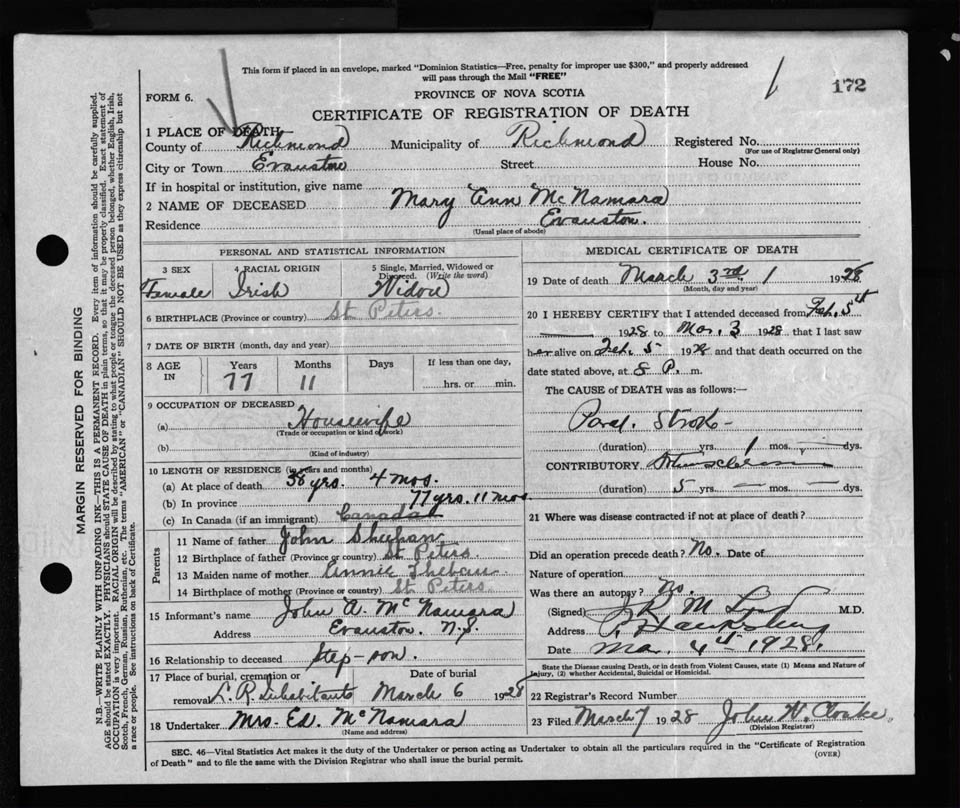 This form if placed in an envelope, marked "Dominion Statistics—Free, penalty for improper use $300," and properly addressed
will pass through the Mail "FREE"
172
FORM 6.
PROVINCE OF NOVA SCOTIA
CERTIFICATE OF REGISTRATION OF DEATH
1 PLACE OF DEATH—
County of Richmond Municipality of Richmond Registered No.
(For use of Registrar General only)
City or Town Evanston Street House No.
If in hospital or institution, give name
2 NAME OF DECEASED Mary Ann McNamara
Residence Evanston.
(Usual place of abode)
PERSONAL AND STATISTICAL INFORMATION
3 SEX 4 RACIAL ORIGIN 5 Single, Married, Widowed or
Divorced. (Write the word)
Female Irish Widow
6 BIRTHPLACE (Province or country) St Peters.
7 DATE OF BIRTH (month, day and year)
8 AGE IN Years Months Days If less than one day,
77 11 hrs. or min.
9 OCCUPATION OF DECEASED
(a) Housewife
(Trade or occupation or kind of work)
(b)
(Kind of industry)
10 LENGTH OF RESIDENCE (in years and months)
(a) At place of death 58 yrs. 4 mos.
(b) In province 77 yrs. 11 mos.
(c) In Canada (if an immigrant) Canada
Parents
11 Name of father John Sheehan
12 Birthplace of father (Province or country) St Peters.
13 Maiden name of mother Annie
14 Birthplace of mother (Province or country) St Peters.
15 Informant's name John A. McNamara
Address Evanston. N.S.
16 Relationship to deceased Step-son.
17 Place of burial, cremation or Date of burial
removal L. R. Inhabitants March 6 1928
18 Undertaker Mrs. Ed. McNamara
(Name and address)
MEDICAL CERTIFICATE OF DEATH
19 Date of death March 3rd 1928
(Month, day and year)
20 I HEREBY CERTIFY that I attended deceased from Feb. 5th
1928 to Mar. 3 1928 that I last saw
her alive on Feb. 5 1928 and that death occurred on the
date stated above, at 8 P. m.
The CAUSE of DEATH was as follows:—
Paral. Stroke
(duration) yrs. 1 mos. dys.
CONTRIBUTORY
(duration) 5 yrs. — mos. — dys.
21 Where was disease contracted if not at place of death?
Did an operation precede death? No. Date of
Nature of operation
Was there an autopsy? No.
(Signed) M.D.
Address
Date Mar. 4th 1928.
State the Disease causing Death, or in death from Violent Causes, state (1) Means and Nature of
Injury, (2) whether Accidental, Suicidal or Homicidal.
22 Registrar's Record Number
23 Filed March 7 1928 John H. Cloake.
(Division Registrar)
SEC. 46—Vital Statistics Act makes it the duty of the Undertaker or person acting as Undertaker to obtain all the particulars required in the "Certificate of Registration
of Death" and to file the same with the Division Registrar who shall issue the burial permit.
(OVER)
MARGIN RESERVED FOR BINDING
N.B.—WRITE PLAINLY WITH UNFADING INK—THIS IS A PERMANENT RECORD. Every item of information should be carefully supplied.
AGE should be stated EXACTLY. PHYSICIANS should STATE CAUSE OF DEATH in plain terms, so that it may be properly classified. Exact statement of
OCCUPATION is very important. RACIAL ORIGIN will be described by stating to what people or tongue the deceased person belonged, whether English, Irish,
Scotch, French, German, Russian, Ruthenian, etc. The terms "AMERICAN" or "CANADIAN" SHOULD NOT BE USED as they express citizenship but not
a race or people. See instructions on back of Certificate.